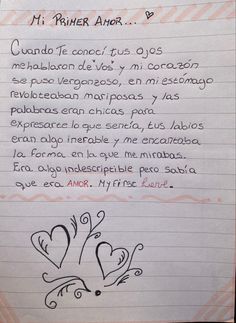 Mi Primer Amor...
Cuando Te conocí tus ojos
me hablaron de "Vos" y mi corazón
se puso vergonzoso, en mi estómago
revoloteaban mariposas y las
palabras eran chicas para
expresarte lo que sentía, tus labios
eran algo inefable y me encantaba
la forma en la que me mirabas.
Era algo indescriptible pero sabía
que era AMOR. My First Love.